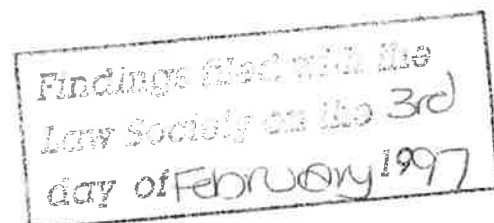 Findings filed with the
Law Society on the 3rd
day of February 1997